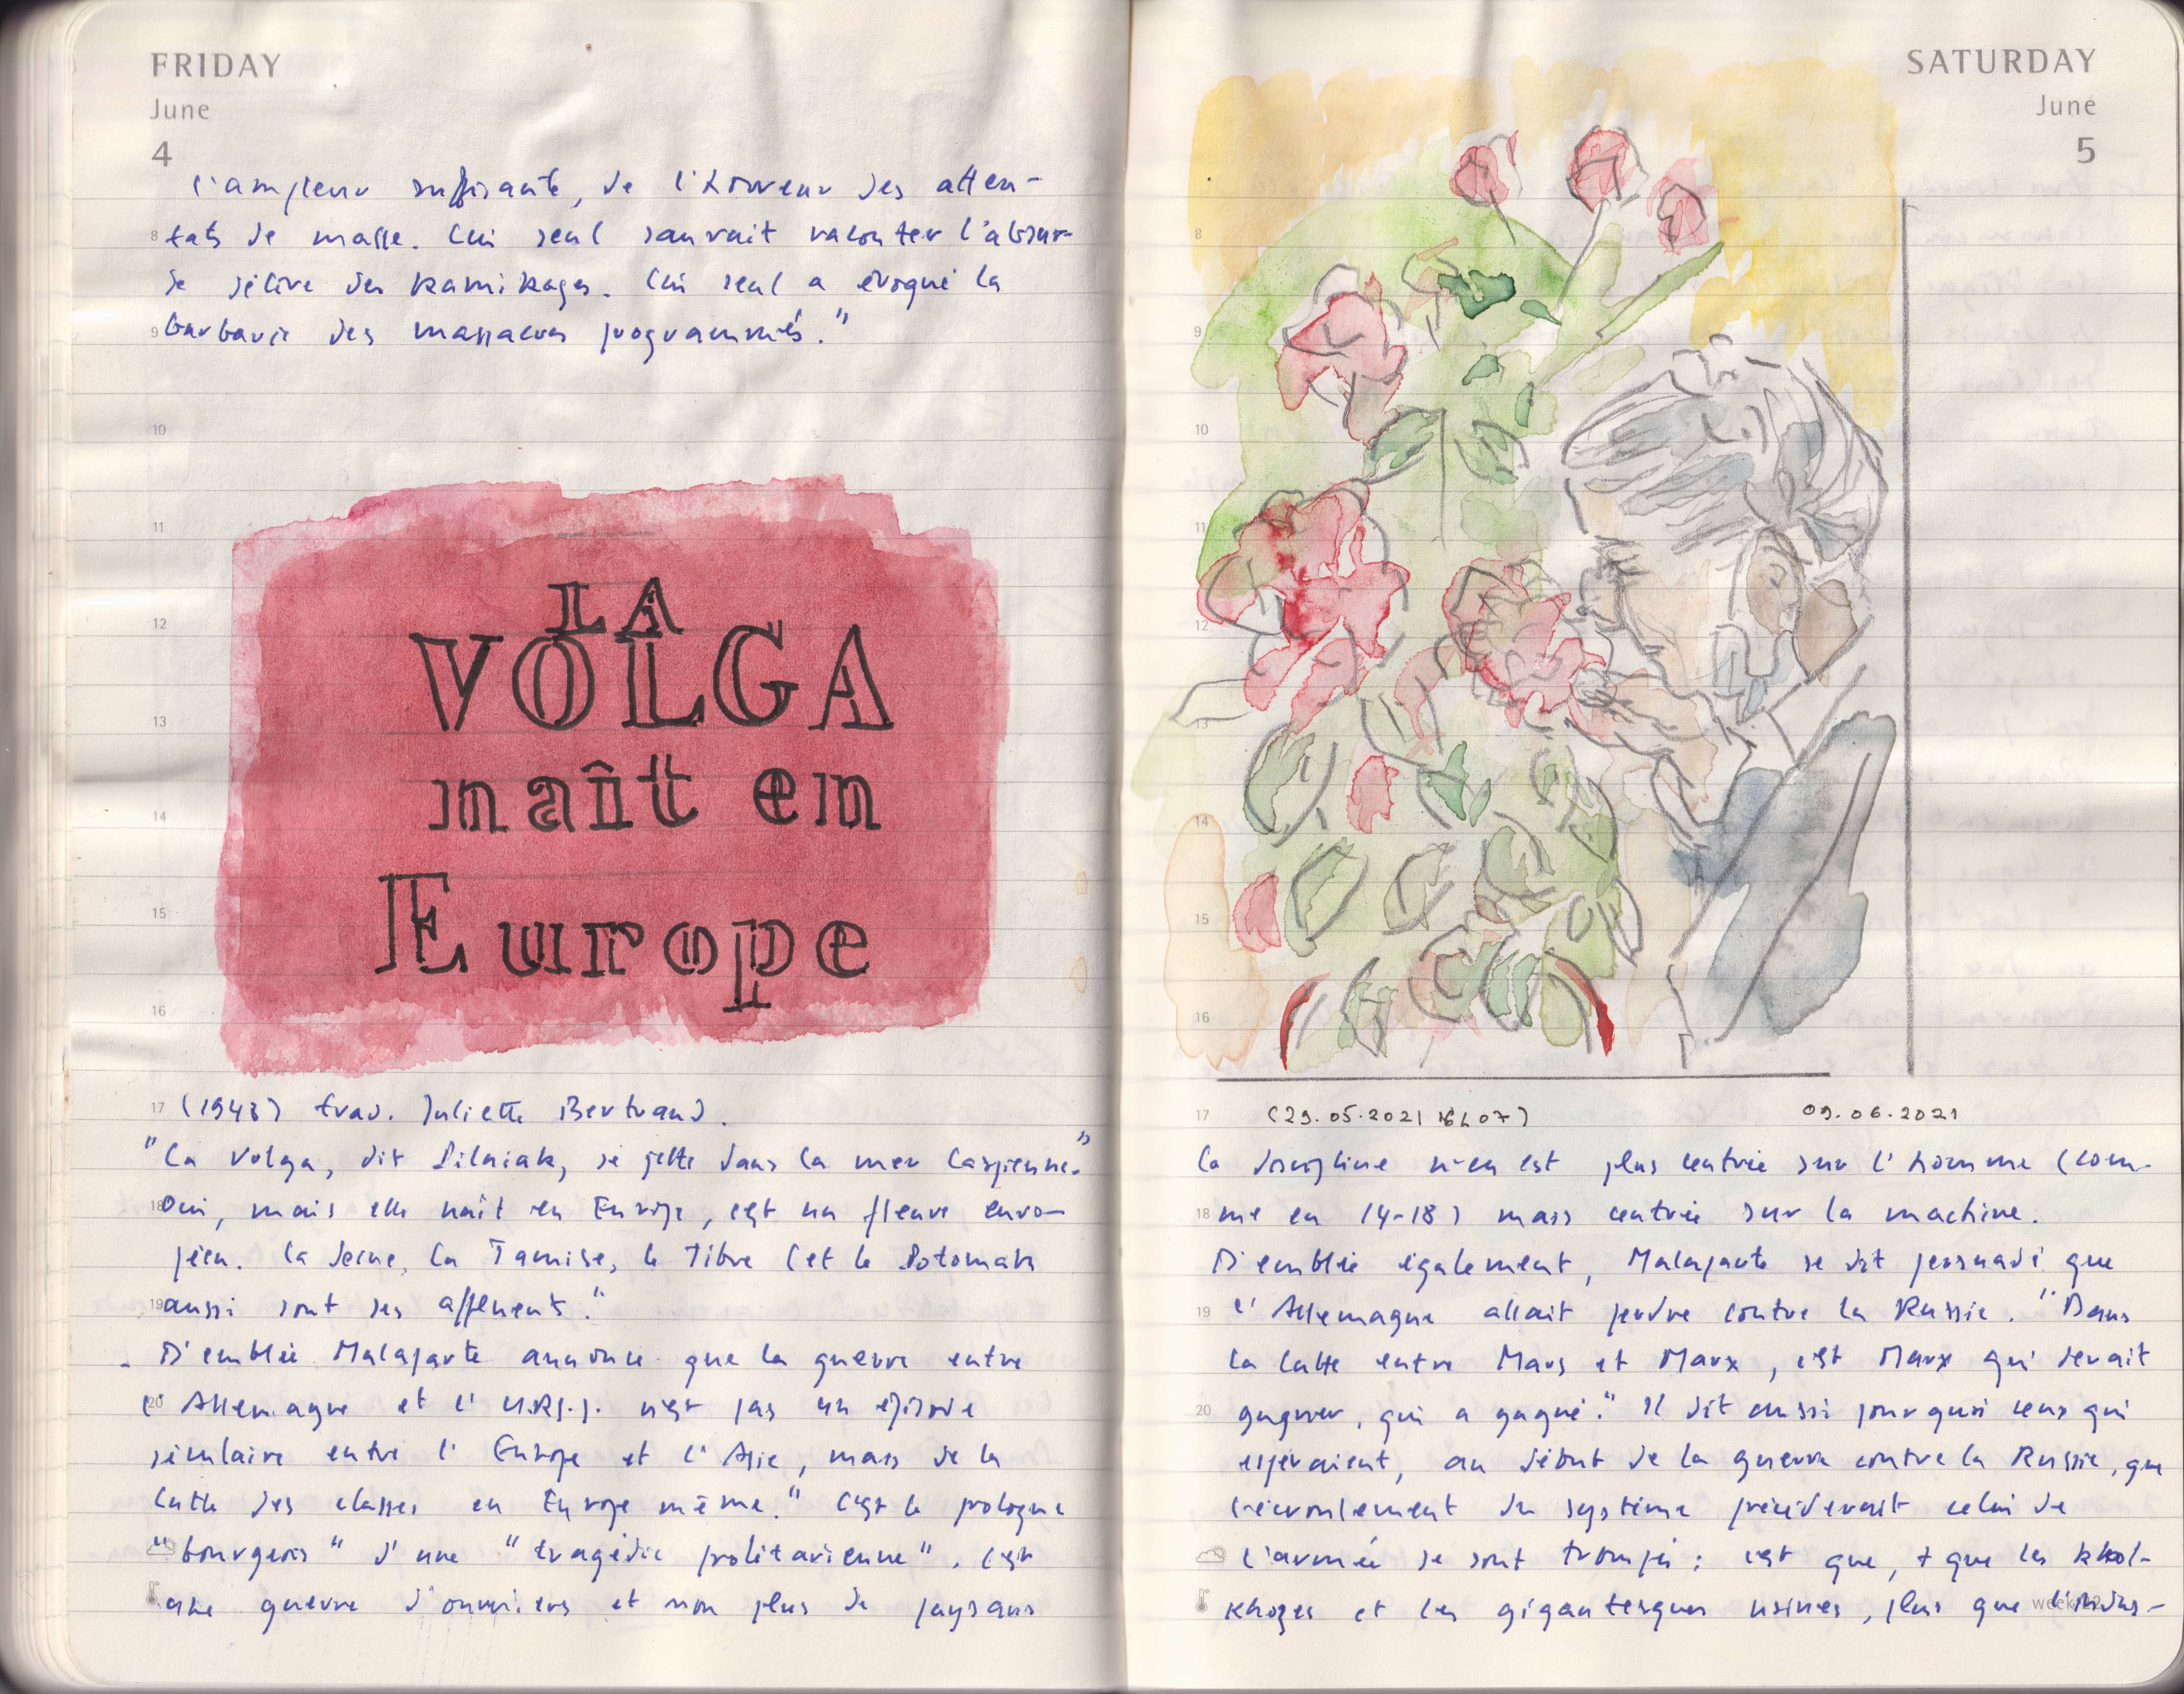 FRIDAY
June
4
l'ampleur suffisante, de l'horreur des atten-
8 tats de masse. Lui seul saurait raconter l'absur-
de délire des kamikazes. Lui seul a évoqué la
9 barbarie des massacres programmés."
10
11
12
13
14
15
16
LA
VOLGA
naît en
Europe
17 (1943) trad. Juliette Bertrand.
"La Volga, dit Pilniak, se jette dans la mer Caspienne."
18 Oui, mais elle naît en Europe, c'est un fleuve euro-
péen. La Seine, la Tamise, le Tibre (et le Potomak
19 aussi sont ses affluents."
- D'emblée Malaparte annonce que la guerre entre
20 l'Allemagne et l'U.R.S.S. n'est pas un épisode
séculaire entre l'Europe et l'Asie, mais de la
lutte des classes en Europe même." C'est le prologue
"bourgeois" d'une "tragédie prolétarienne". C'est
une guerre d'ouvriers et non plus de paysans
SATURDAY
June
5
8
9
10
11
12
13
14
15
16
17 (29.05.2021 16h07) 09.06.2021
la discipline n'en est plus centrée sur l'homme (com-
18 me en 14-18) mais centrée sur la machine.
D'emblée également, Malaparte se dit persuadé que
19 l'Allemagne allait perdre contre la Russie. "Dans
la lutte entre Mars et Marx, c'est Marx qui devait
20 gagner, qui a gagné." Il dit aussi pourquoi ceux qui
espéraient, au début de la guerre contre la Russie, que
l'écroulement du système précéderait celui de
l'armée se sont trompés : c'est que, + que les kkol-
khozes et les gigantesques usines, plus que l'indus-
week